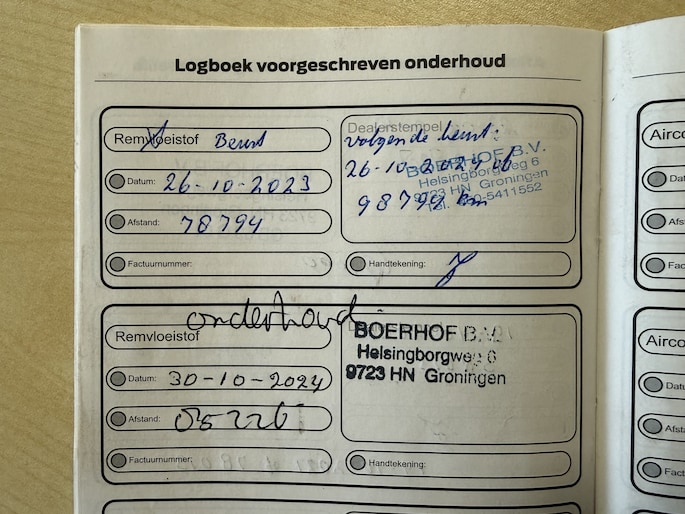 Logboek voorgeschreven onderhoud
Remvloeistof Beurt
Datum: 26-10-2023
Afstand: 78794
Factuurnummer:
Dealerstempel
volgende beurt:
26-10-2024 of
98794 km
BOERHOF B.V.
Helsingborgweg 6
9723 HN Groningen
Tel. 050-5411552
Handtekening:
onderhoud
Remvloeistof
Datum: 30-10-2024
Afstand:
Factuurnummer:
BOERHOF B.V.
Helsingborgweg 6
9723 HN Groningen
Handtekening:
Airco
Datu
Afst
Fac
Airco
Datu
Afsta
Fact